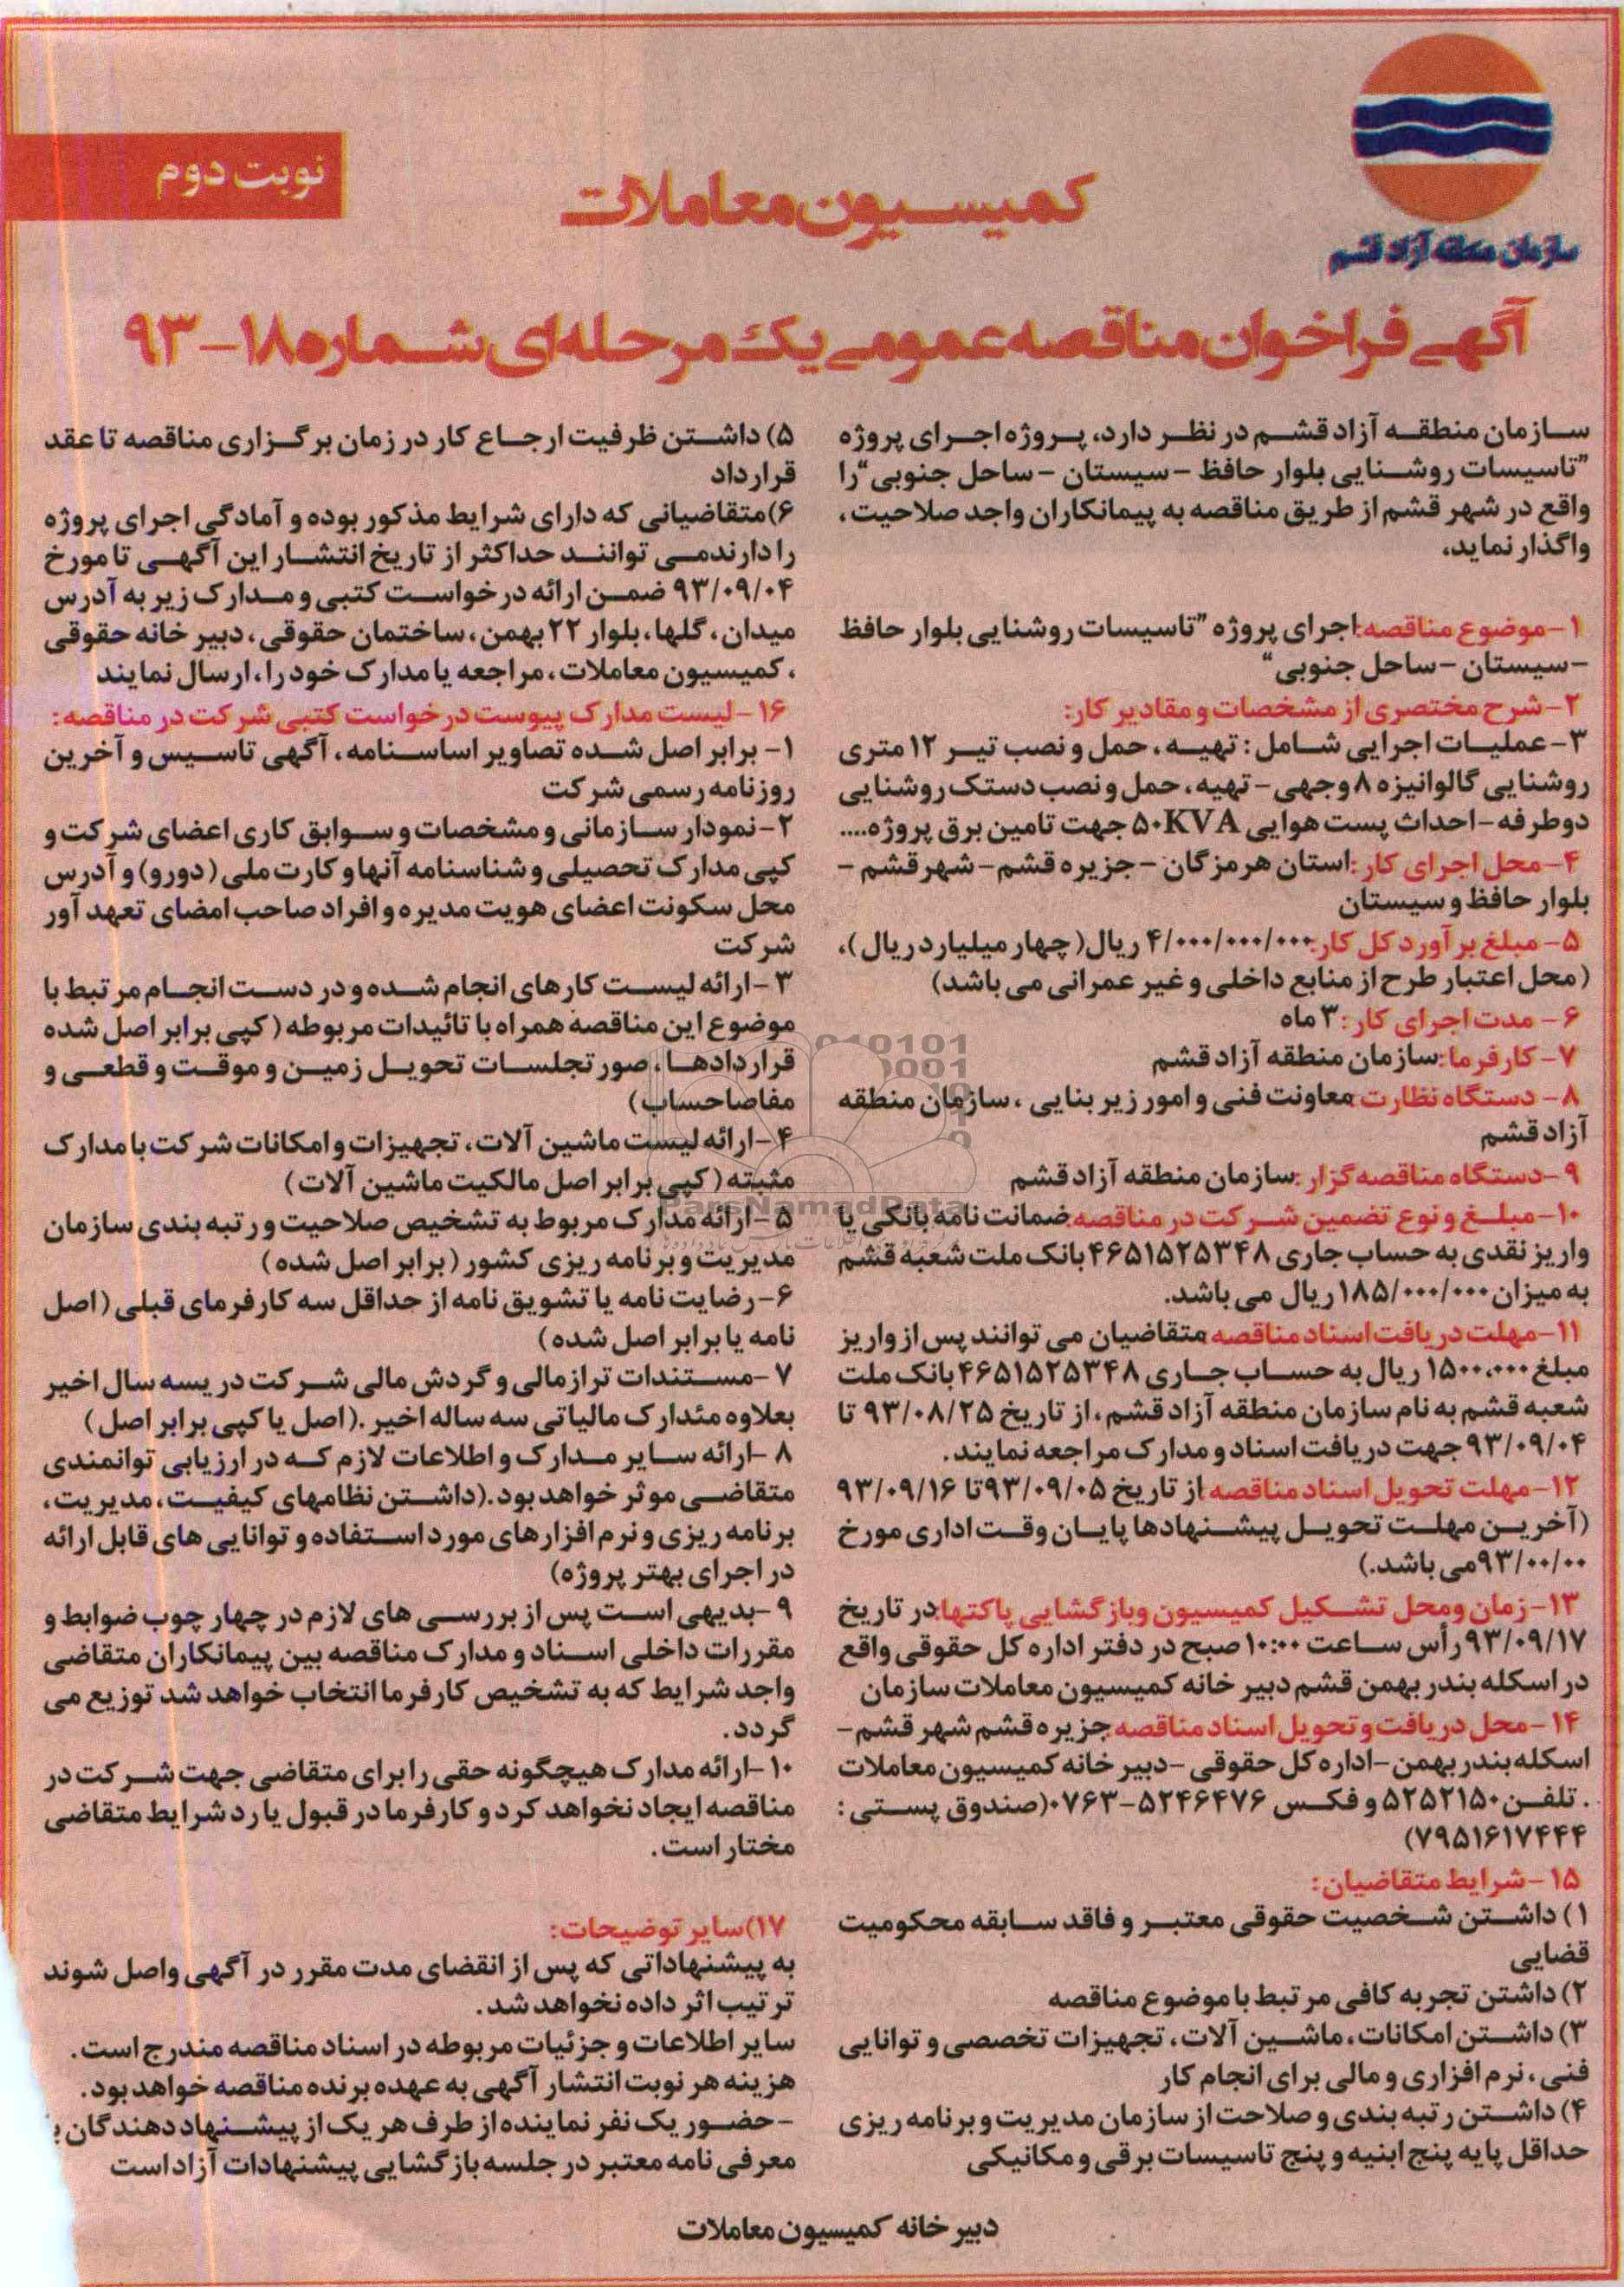 سازمان منطقه آزاد قشم
نوبت دوم
کمیسیون معاملات
آگهی فراخوان مناقصه عمومی یک مرحله‌ای شماره ۱۸-۹۳
سازمان منطقه آزاد قشم در نظر دارد، پروژه اجرای پروژه
"تاسیسات روشنایی بلوار حافظ -سیستان -ساحل جنوبی" را
واقع در شهر قشم از طریق مناقصه به پیمانکاران واجد صلاحیت،
واگذار نماید،
۱-موضوع مناقصه:اجرای پروژه "تاسیسات روشنایی بلوار حافظ
-سیستان -ساحل جنوبی"
۲-شرح مختصری از مشخصات و مقادیر کار:
۳-عملیات اجرایی شامل: تهیه، حمل و نصب تیر ۱۲ متری
روشنایی گالوانیزه ۸ وجهی - تهیه، حمل و نصب دستک روشنایی
دوطرفه-احداث پست هوایی ۵۰KVA جهت تامین برق پروژه....
۴-محل اجرای کار:استان هرمزگان -جزیره قشم-شهرقشم -
بلوار حافظ و سیستان
۵-مبلغ برآورد کل کار:۴/۰۰۰/۰۰۰/۰۰۰ ریال( چهار میلیارد ریال)،
(محل اعتبار طرح از منابع داخلی و غیر عمرانی می باشد)
۶-مدت اجرای کار:۳ ماه
۷-کارفرما:سازمان منطقه آزاد قشم
۸-دستگاه نظارت:معاونت فنی و امور زیر بنایی ،سازمان منطقه
آزاد قشم
۹-دستگاه مناقصه گزار:سازمان منطقه آزاد قشم
۱۰-مبلغ و نوع تضمین شرکت در مناقصه:ضمانت نامه بانکی یا
واریز نقدی به حساب جاری ۴۶۵۱۵۲۵۳۴۸ بانک ملت شعبه قشم
به میزان ۱۸۵/۰۰۰/۰۰۰ ریال می باشد.
۱۱-مهلت دریافت اسناد مناقصه:متقاضیان می توانند پس از واریز
مبلغ ۱۵۰۰،۰۰۰ ریال به حساب جاری ۴۶۵۱۵۲۵۳۴۸ بانک ملت
شعبه قشم به نام سازمان منطقه آزاد قشم،از تاریخ ۹۳/۰۸/۲۵ تا
۹۳/۰۹/۰۴ جهت دریافت اسناد و مدارک مراجعه نمایند.
۱۲-مهلت تحویل اسناد مناقصه:از تاریخ ۹۳/۰۹/۰۵ تا ۹۳/۰۹/۱۶
(آخرین مهلت تحویل پیشنهادها پایان وقت اداری مورخ
۹۳/۰۰/۰۰ می باشد.)
۱۳-زمان ومحل تشکیل کمیسیون وبازگشایی پاکتها:در تاریخ
۹۳/۰۹/۱۷ رأس ساعت ۱۰:۰۰ صبح در دفتر اداره کل حقوقی واقع
در اسکله بندر بهمن قشم دبیر خانه کمیسیون معاملات سازمان
۱۴-محل دریافت و تحویل اسناد مناقصه:جزیره قشم شهر قشم-
اسکله بندر بهمن-اداره کل حقوقی -دبیر خانه کمیسیون معاملات
.تلفن ۵۲۵۲۱۵۰ و فکس ۵۲۴۶۴۷۶-۰۷۶۳(صندوق پستی:
۷۹۵۱۶۱۷۴۴۴)
۱۵-شرایط متقاضیان:
۱) داشتن شخصیت حقوقی معتبر و فاقد سابقه محکومیت
قضایی
۲) داشتن تجربه کافی مرتبط با موضوع مناقصه
۳) داشتن امکانات، ماشین آلات، تجهیزات تخصصی و توانایی
فنی، نرم افزاری و مالی برای انجام کار
۴) داشتن رتبه بندی و صلاحت از سازمان مدیریت و برنامه ریزی
حداقل پایه پنج ابنیه و پنج تاسیسات برقی و مکانیکی
۵) داشتن ظرفیت ارجاع کار در زمان برگزاری مناقصه تا عقد
قرارداد
۶)متقاضیانی که دارای شرایط مذکور بوده و آمادگی اجرای پروژه
را دارندمی توانند حداکثر از تاریخ انتشار این آگهی تا مورخ
۹۳/۰۹/۰۴ ضمن ارائه درخواست کتبی و مدارک زیر به آدرس
میدان، گلها،بلوار ۲۲ بهمن، ساختمان حقوقی، دبیر خانه حقوقی
،کمیسیون معاملات، مراجعه یا مدارک خود را، ارسال نمایند
۱۶-لیست مدارک پیوست درخواست کتبی شرکت در مناقصه:
۱- برابر اصل شده تصاویر اساسنامه، آگهی تاسیس و آخرین
روزنامه رسمی شرکت
۲-نمودار سازمانی و مشخصات و سوابق کاری اعضای شرکت و
کپی مدارک تحصیلی و شناسنامه آنها و کارت ملی (دورو) و آدرس
محل سکونت اعضای هویت مدیره و افراد صاحب امضای تعهد آور
شرکت
۳-ارائه لیست کارهای انجام شده و در دست انجام مرتبط با
موضوع این مناقصه همراه با تائیدات مربوطه( کپی برابر اصل شده
قراردادها، صورتجلسات تحویل زمین و موقت و قطعی و
مفاصاحساب)
۴-ارائه لیست ماشین آلات، تجهیزات و امکانات شرکت با مدارک
مثبته (کپی برابر اصل مالکیت ماشین آلات)
۵-ارائه مدارک مربوط به تشخیص صلاحیت و رتبه بندی سازمان
مدیریت و برنامه ریزی کشور (برابر اصل شده)
۶-رضایت نامه یا تشویق نامه از حداقل سه کارفرمای قبلی (اصل
نامه یا برابر اصل شده)
۷-مستندات تراز مالی و گردش مالی شرکت در یسه سال اخیر
بعلاوه مئدارک مالیاتی سه ساله اخیر.(اصل یا کپی برابر اصل)
۸-ارائه سایر مدارک و اطلاعات لازم که در ارزیابی توانمندی
متقاضی موثر خواهد بود.(داشتن نظامهای کیفیت، مدیریت،
برنامه ریزی و نرم افزارهای مورد استفاده و توانایی های قابل ارائه
در اجرای بهتر پروژه)
۹-بدیهی است پس از بررسی های لازم در چهار چوب ضوابط و
مقررات داخلی اسناد و مدارک مناقصه بین پیمانکاران متقاضی
واجد شرایط که به تشخیص کارفرما انتخاب خواهد شد توزیع می
گردد.
۱۰-ارائه مدارک هیچگونه حقی را برای متقاضی جهت شرکت در
مناقصه ایجاد نخواهد کرد و کارفرما در قبول یا رد شرایط متقاضی
مختار است.
۱۷)سایر توضیحات:
به پیشنهاداتی که پس از انقضای مدت مقرر در آگهی واصل شوند
ترتیب اثر داده نخواهد شد.
سایر اطلاعات و جزئیات مربوطه در اسناد مناقصه مندرج است.
هزینه هر نوبت انتشار آگهی به عهده برنده مناقصه خواهد بود.
-حضور یک نفر نماینده از طرف هر یک از پیشنهاد دهندگان
معرفی نامه معتبر در جلسه بازگشایی پیشنهادات آزاد است
دبیر خانه کمیسیون معاملات
ParsNamadData